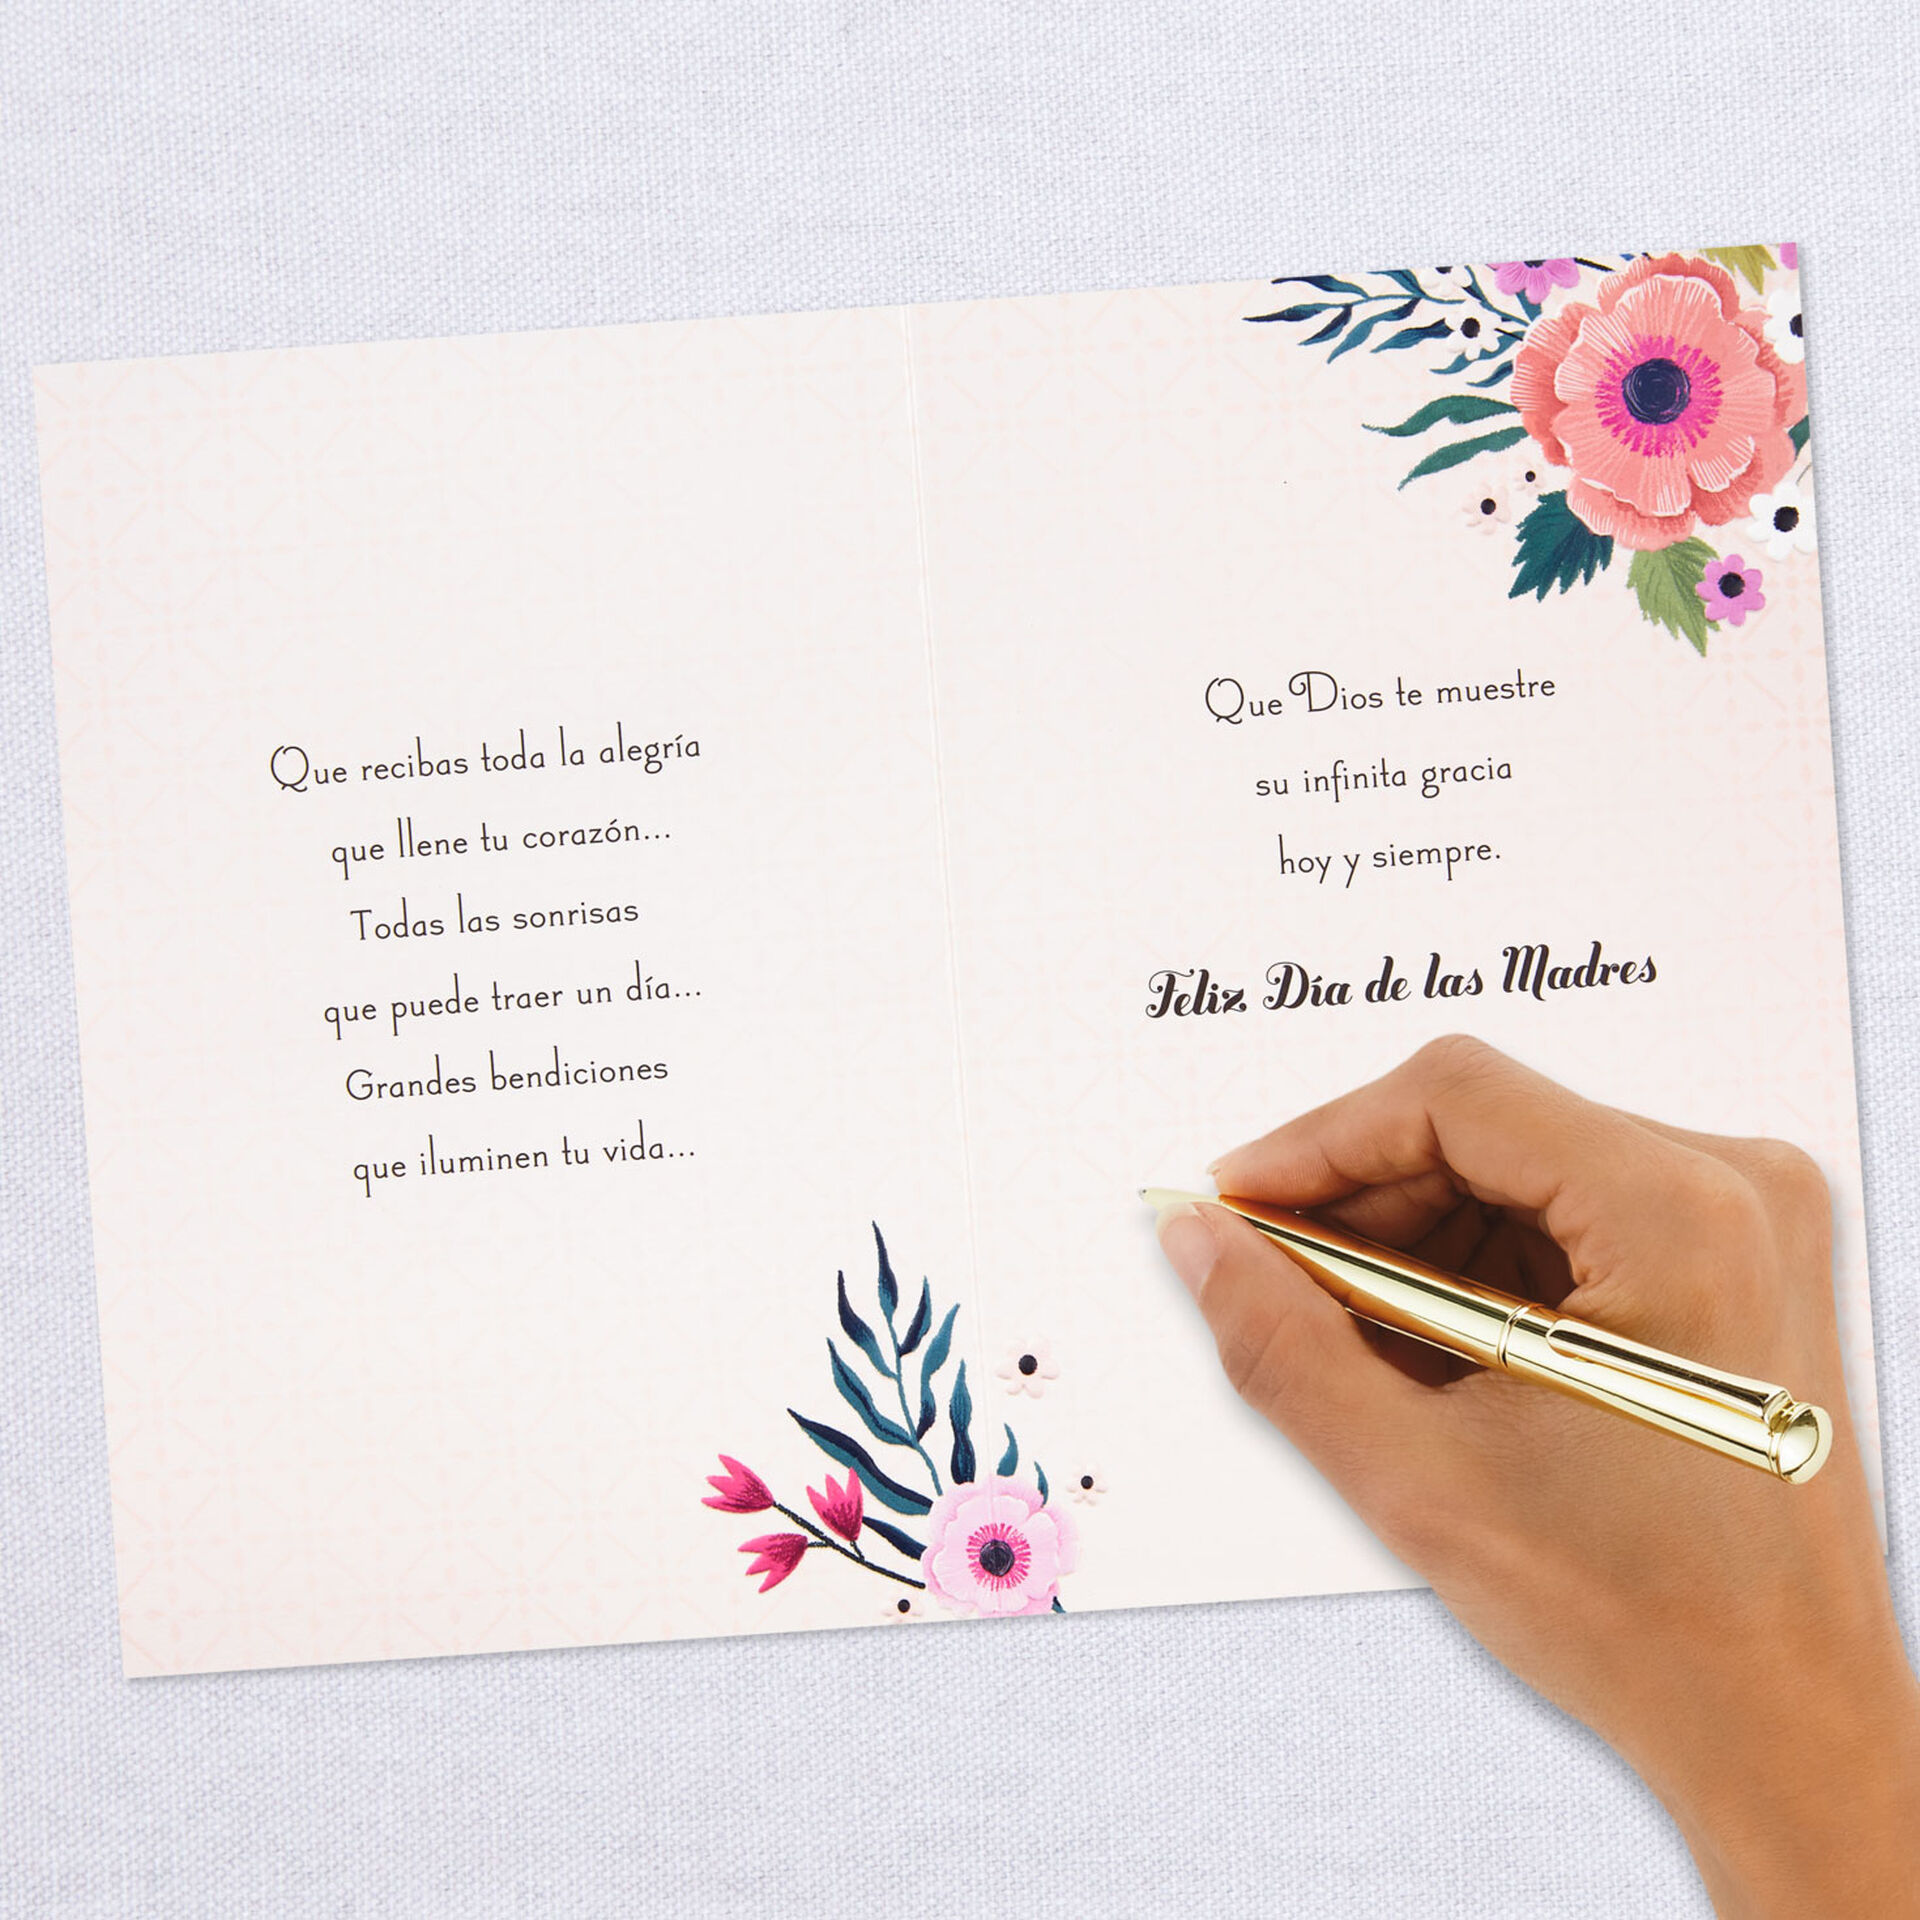 Que recibas toda la alegría
que llene tu corazón...
Todas las sonrisas
que puede traer un día...
Grandes bendiciones
que iluminen tu vida...
Que Dios te muestre
su infinita gracia
hoy y siempre.
Feliz Día de las Madres